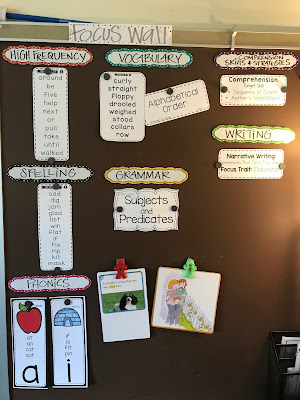 FOCUS WALL
HIGH FREQUENCY
around
be
five
help
next
or
pull
take
until
walked
VOCABULARY
curly
straight
floppy
drooled
weighed
stood
collars
row
Alphabetical
Order
COMPREHENSION
SKILLS & STRATEGIES
Comprehension
Target Skill
Sequence of Events
Author's Word Choice
WRITING
Narrative Writing:
Focus Trait:
SPELLING
sad
dig
jam
glad
list
win
flat
if
fix
rip
kit
mask
GRAMMAR
Subjects
and
Predicates
PHONICS
at
an
cat
sat
a
if
is
fit
pin
i